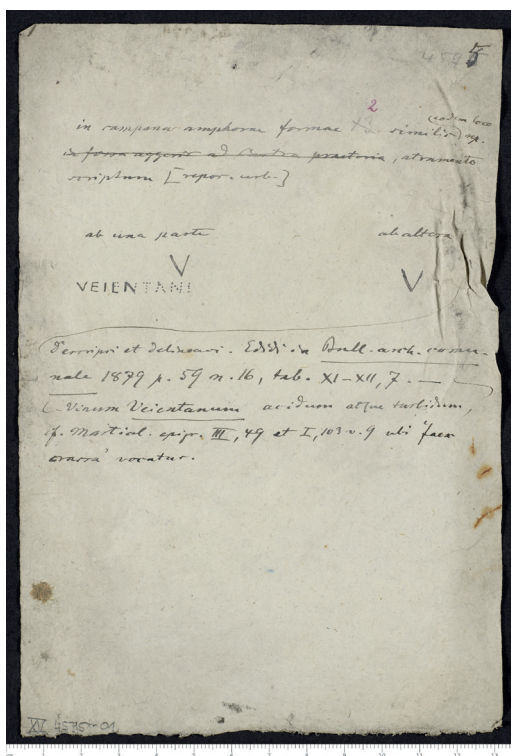 4595
2
(eodem loco
in campana amphorae formae XI similis) rep.
in fossa aggeris ad Castra praetoria, atramento
scriptum [repos. urb.]
ab una parte
ab altera
V
VEIENTANI
V
Descripsi et delineavi. Edidi in Bull. arch. comu-
nale 1879 p. 59 n. 16, tab. XI-XII, 7. —
(Vinum Veientanum acidum atque turbidum,
cf. Martial. epigr. III, 49 et I, 103 v. 9 ubi 'faex
crassa' vocatur.
XV 4595-01